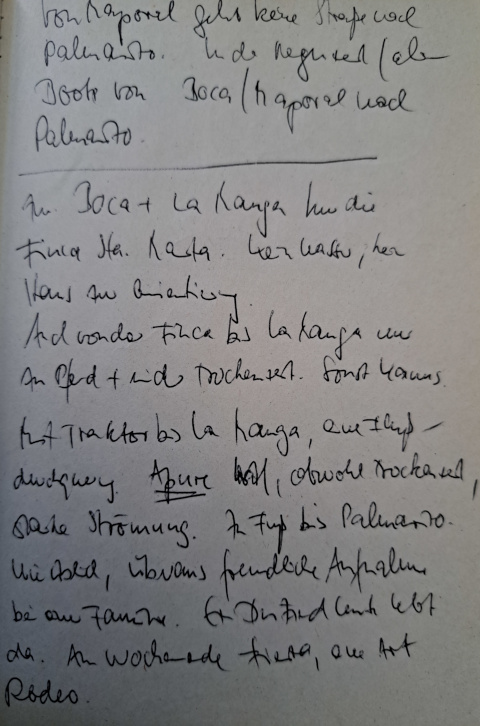 von Kaporal geht keine Straße nach
Palmarito. In der Regenzeit / aber
Boote von Boca / Kaporal nach
Palmarito.
Zw. Boca + La Kanga nur die
Finca Sta. Marta. kein Wasser, kein
Haus zur Orientierung
Auch von der Finca bis La Kanga nur
zu Pferd + in der Trockenzeit. Sonst
Mit Traktor bis La Kanga, eine Fluß-
durchquerung Apure, obwohl Trockenzeit,
starke Strömung. Zu Fuß bis Palmarito.
überaus freundliche Aufnahme
bei einer Familie. Ein Dutzend Leute lebt
da. Am Wochenende Fiesta, eine Art
Rodeo.